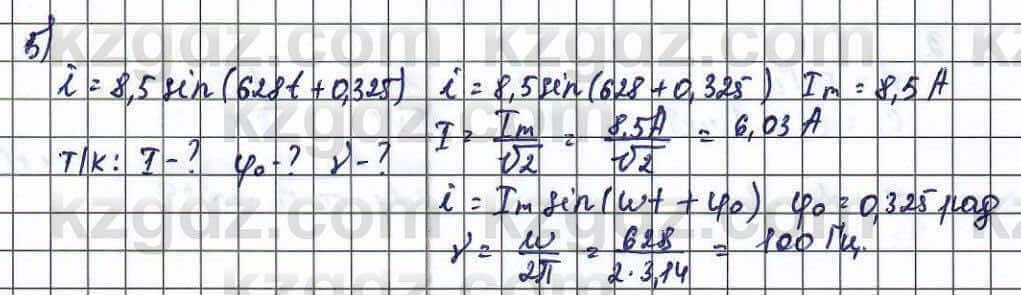 5)
i = 8,5 sin(628t + 0,325) i = 8,5 sin(628 + 0,325) Im = 8,5 A
I = Im/√2 = 8,5A/√2 = 6,03 A
Т/к: I-? φ₀-? ν-?
i = Im sin(ωt + φ₀) φ₀ = 0,325 рад
ν = ω/2π = 628/2·3,14 = 100 Гц.
kzgdz.com kzgdz.com
kzgdz.com
kzgdz.com kzgdz.com
kzgdz.com